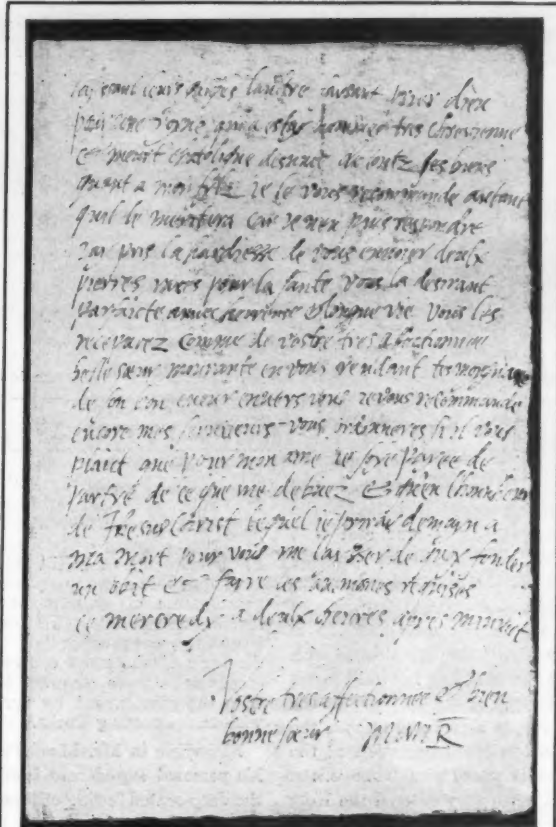 leurs laultre faysant prier dieu
pour une royne qui a estay nommee tres chrestienne
& meurt catolique desnuee de toutz ses biens
quant a mon fylz je le vous recommande autant
quil le meritera car je nen puis respondre
Jay pris la hardiesse de vous envoier deulx
pierres rares pour la sante vous la desirant
parfaicte avvec heureuse & longue vie vous les
recevrez comme de vostre tres affectionnee
belle sœur mourante en vous rendant tesmoygnage
de son bon cueur envers vous je vous recommande
encore mes serviteurs vous ordonneres si il vous
plaict que pour mon ame je soye payee de
partye de ce que me debvez & quen lhonneur
de Jhesus Christ lequel je priray demayn a
ma mort pour vous me laisser de quoy fonder
un obit & fayre les aumosnes requises
ce mercredy a deulx heures apres minuit
Vostre tres affectionnee & bien
bonne sœur MARI R